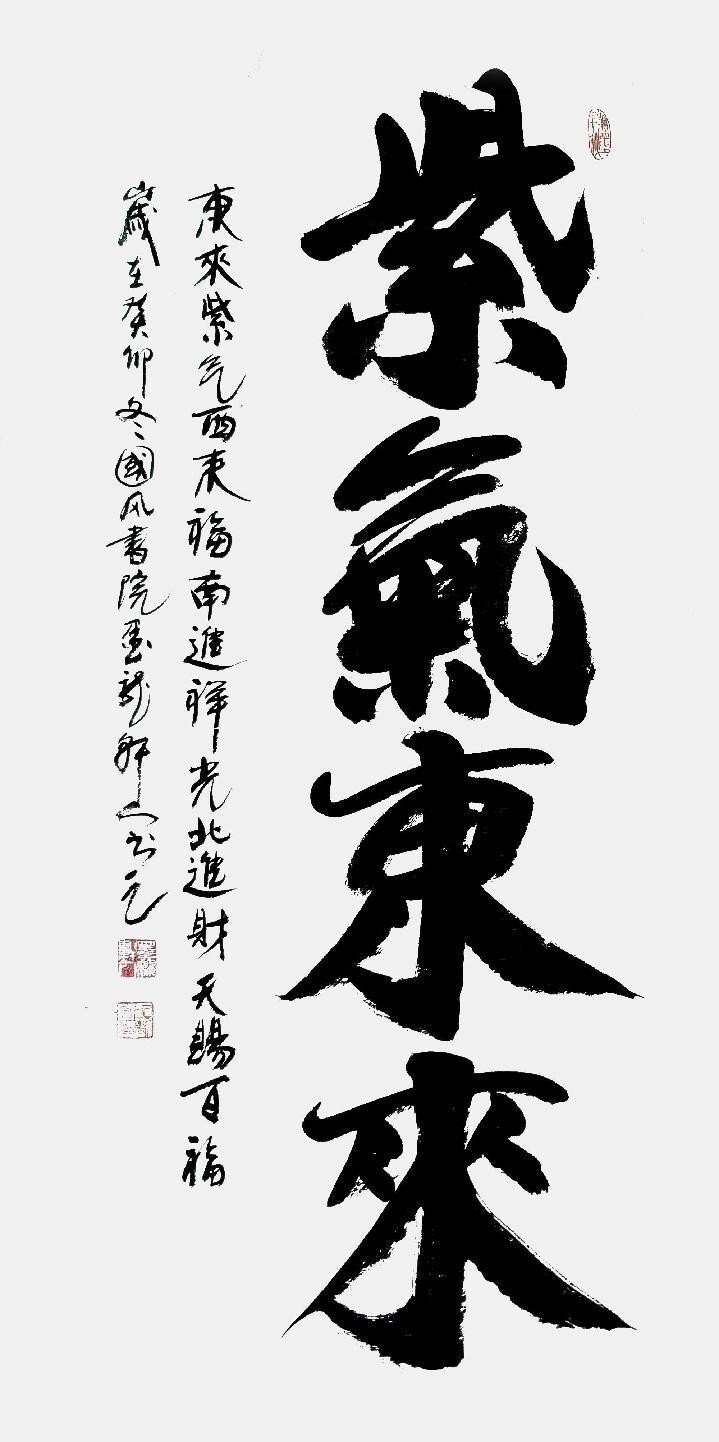 紫氣東來
東來紫气西来福南進祥光北進財天賜百福
歲在癸卯冬國风書院墨龍軒人书